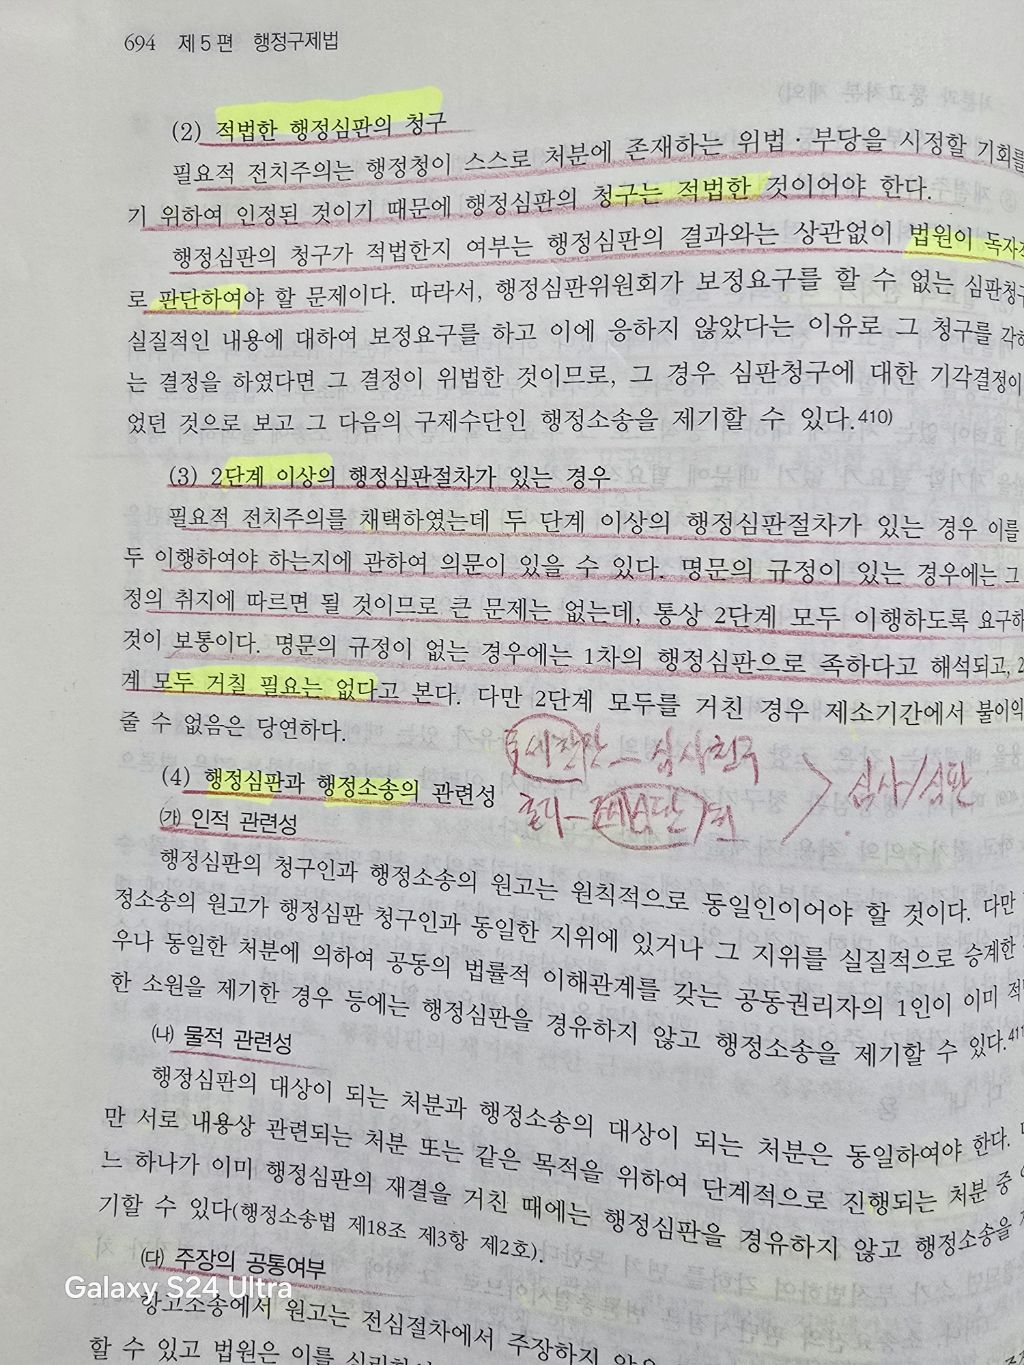 694 제5편 행정구제법
(2) 적법한 행정심판의 청구
필요적 전치주의는 행정청이 스스로 처분에 존재하는 위법 · 부당을 시정할 기회를
기 위하여 인정된 것이기 때문에 행정심판의 청구는 적법한 것이어야 한다.
행정심판의 청구가 적법한지 여부는 행정심판의 결과와는 상관없이 법원이 독자
로 판단하여야 할 문제이다. 따라서, 행정심판위원회가 보정요구를 할 수 없는 심판청구
실질적인 내용에 대하여 보정요구를 하고 이에 응하지 않았다는 이유로 그 청구를 각하
는 결정을 하였다면 그 결정이 위법한 것이므로, 그 경우 심판청구에 대한 기각결정이
었던 것으로 보고 그 다음의 구제수단인 행정소송을 제기할 수 있다.410)
(3) 2단계 이상의 행정심판절차가 있는 경우
필요적 전치주의를 채택하였는데 두 단계 이상의 행정심판절차가 있는 경우 이를
두 이행하여야 하는지에 관하여 의문이 있을 수 있다. 명문의 규정이 있는 경우에는 그
정의 취지에 따르면 될 것이므로 큰 문제는 없는데, 통상 2단계 모두 이행하도록 요구하
것이 보통이다. 명문의 규정이 없는 경우에는 1차의 행정심판으로 족하다고 해석되고, 2
계 모두 거칠 필요는 없다고 본다. 다만 2단계 모두를 거친 경우 제소기간에서 불이익
줄 수 없음은 당연하다.
심사청구
심사/심판
(4) 행정심판과 행정소송의 관련성
㈎ 인적 관련성
행정심판의 청구인과 행정소송의 원고는 원칙적으로 동일인이어야 할 것이다. 다만
정소송의 원고가 행정심판 청구인과 동일한 지위에 있거나 그 지위를 실질적으로 승계한
우나 동일한 처분에 의하여 공동의 법률적 이해관계를 갖는 공동권리자의 1인이 이미 적
한 소원을 제기한 경우 등에는 행정심판을 경유하지 않고 행정소송을 제기할 수 있다.411
㈏ 물적 관련성
행정심판의 대상이 되는 처분과 행정소송의 대상이 되는 처분은 동일하여야 한다.
만 서로 내용상 관련되는 처분 또는 같은 목적을 위하여 단계적으로 진행되는 처분 중
느 하나가 이미 행정심판의 재결을 거친 때에는 행정심판을 경유하지 않고 행정소송을
기할 수 있다(행정소송법 제18조 제3항 제2호).
㈐ 주장의 공통여부
항고소송에서 원고는 전심절차에서 주장하지 않은
할 수 있고 법원은 이를 심리하
Galaxy S24 Ultra